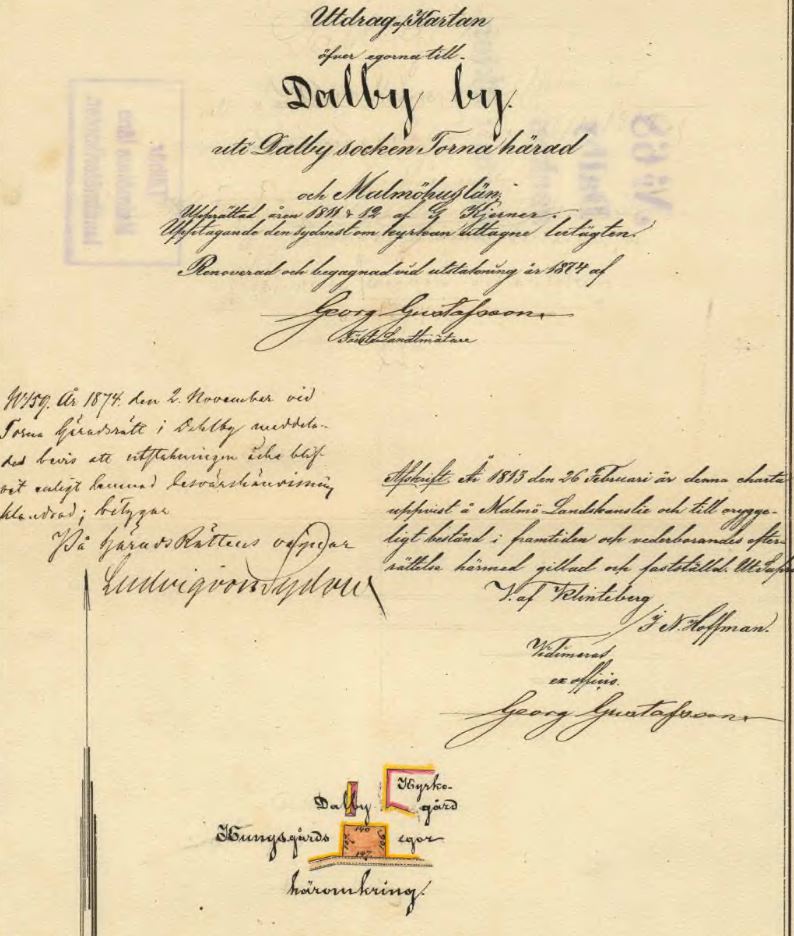 Utdrag af Kartan
öfver egorna till
Dalby by.
uti Dalby socken Torna härad
och Malmöhus län;
Upprättad åren 1811 & 12 af G Kjerner.
Upptagande den sydvest om kyrkan uttagne
Renoverad och begagnad vid utstakning år 1874 af
Georg Gustafsson
Förste Landtmätare
N 159. År 1874 den 2. November vid
Torna Häradsrätt i Dahlby meddela-
des bevis att utstakningen icke blif-
vit enligt lemnad besvärshänvisning
klandrad; betygar
På Härads Rättens vägnar
Ludvig von Sydow
Afskrift. År 1813 den 26 Februari är denna charta
uppvist å Malmö Landskanslie och till orygge-
ligt bestånd i framtiden och vederbörandes efter-
rättelse härmed gillad och fastställd. Ut Supra
V. af Klinteberg
/ J N. Hoffman.
Vidimeras
ex officio.
Georg Gustafsson
Kyrko-
Dalby gård
Kungsgårds egor
140
147
häromkring.
No 68
Dalby